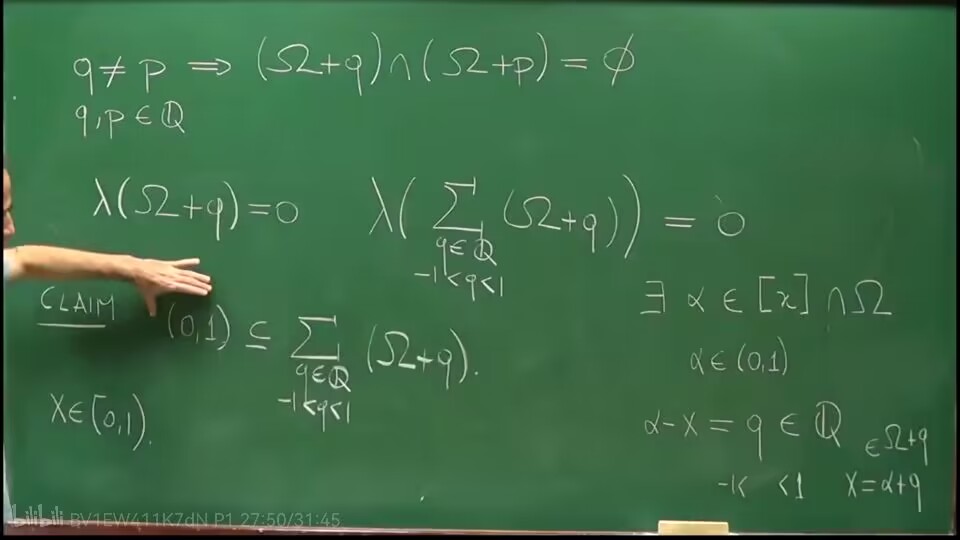 q ≠ p ⟹ (Ω+q)∩(Ω+p) = ∅
q,p ∈ ℚ
λ(Ω+q)=0
λ(∑ (Ω+q)) = 0
q∈ℚ
-1<q<1
CLAIM
(0,1) ⊆ ∑ (Ω+q).
q∈ℚ
-1<q<1
X∈(0,1).
∃ α ∈ [x] ∩ Ω
α∈(0,1)
α-X = q ∈ ℚ
-1< <1
∈Ω+q
X=α+q
bilibili BV1EW411K7dN P1 27:50/31:45